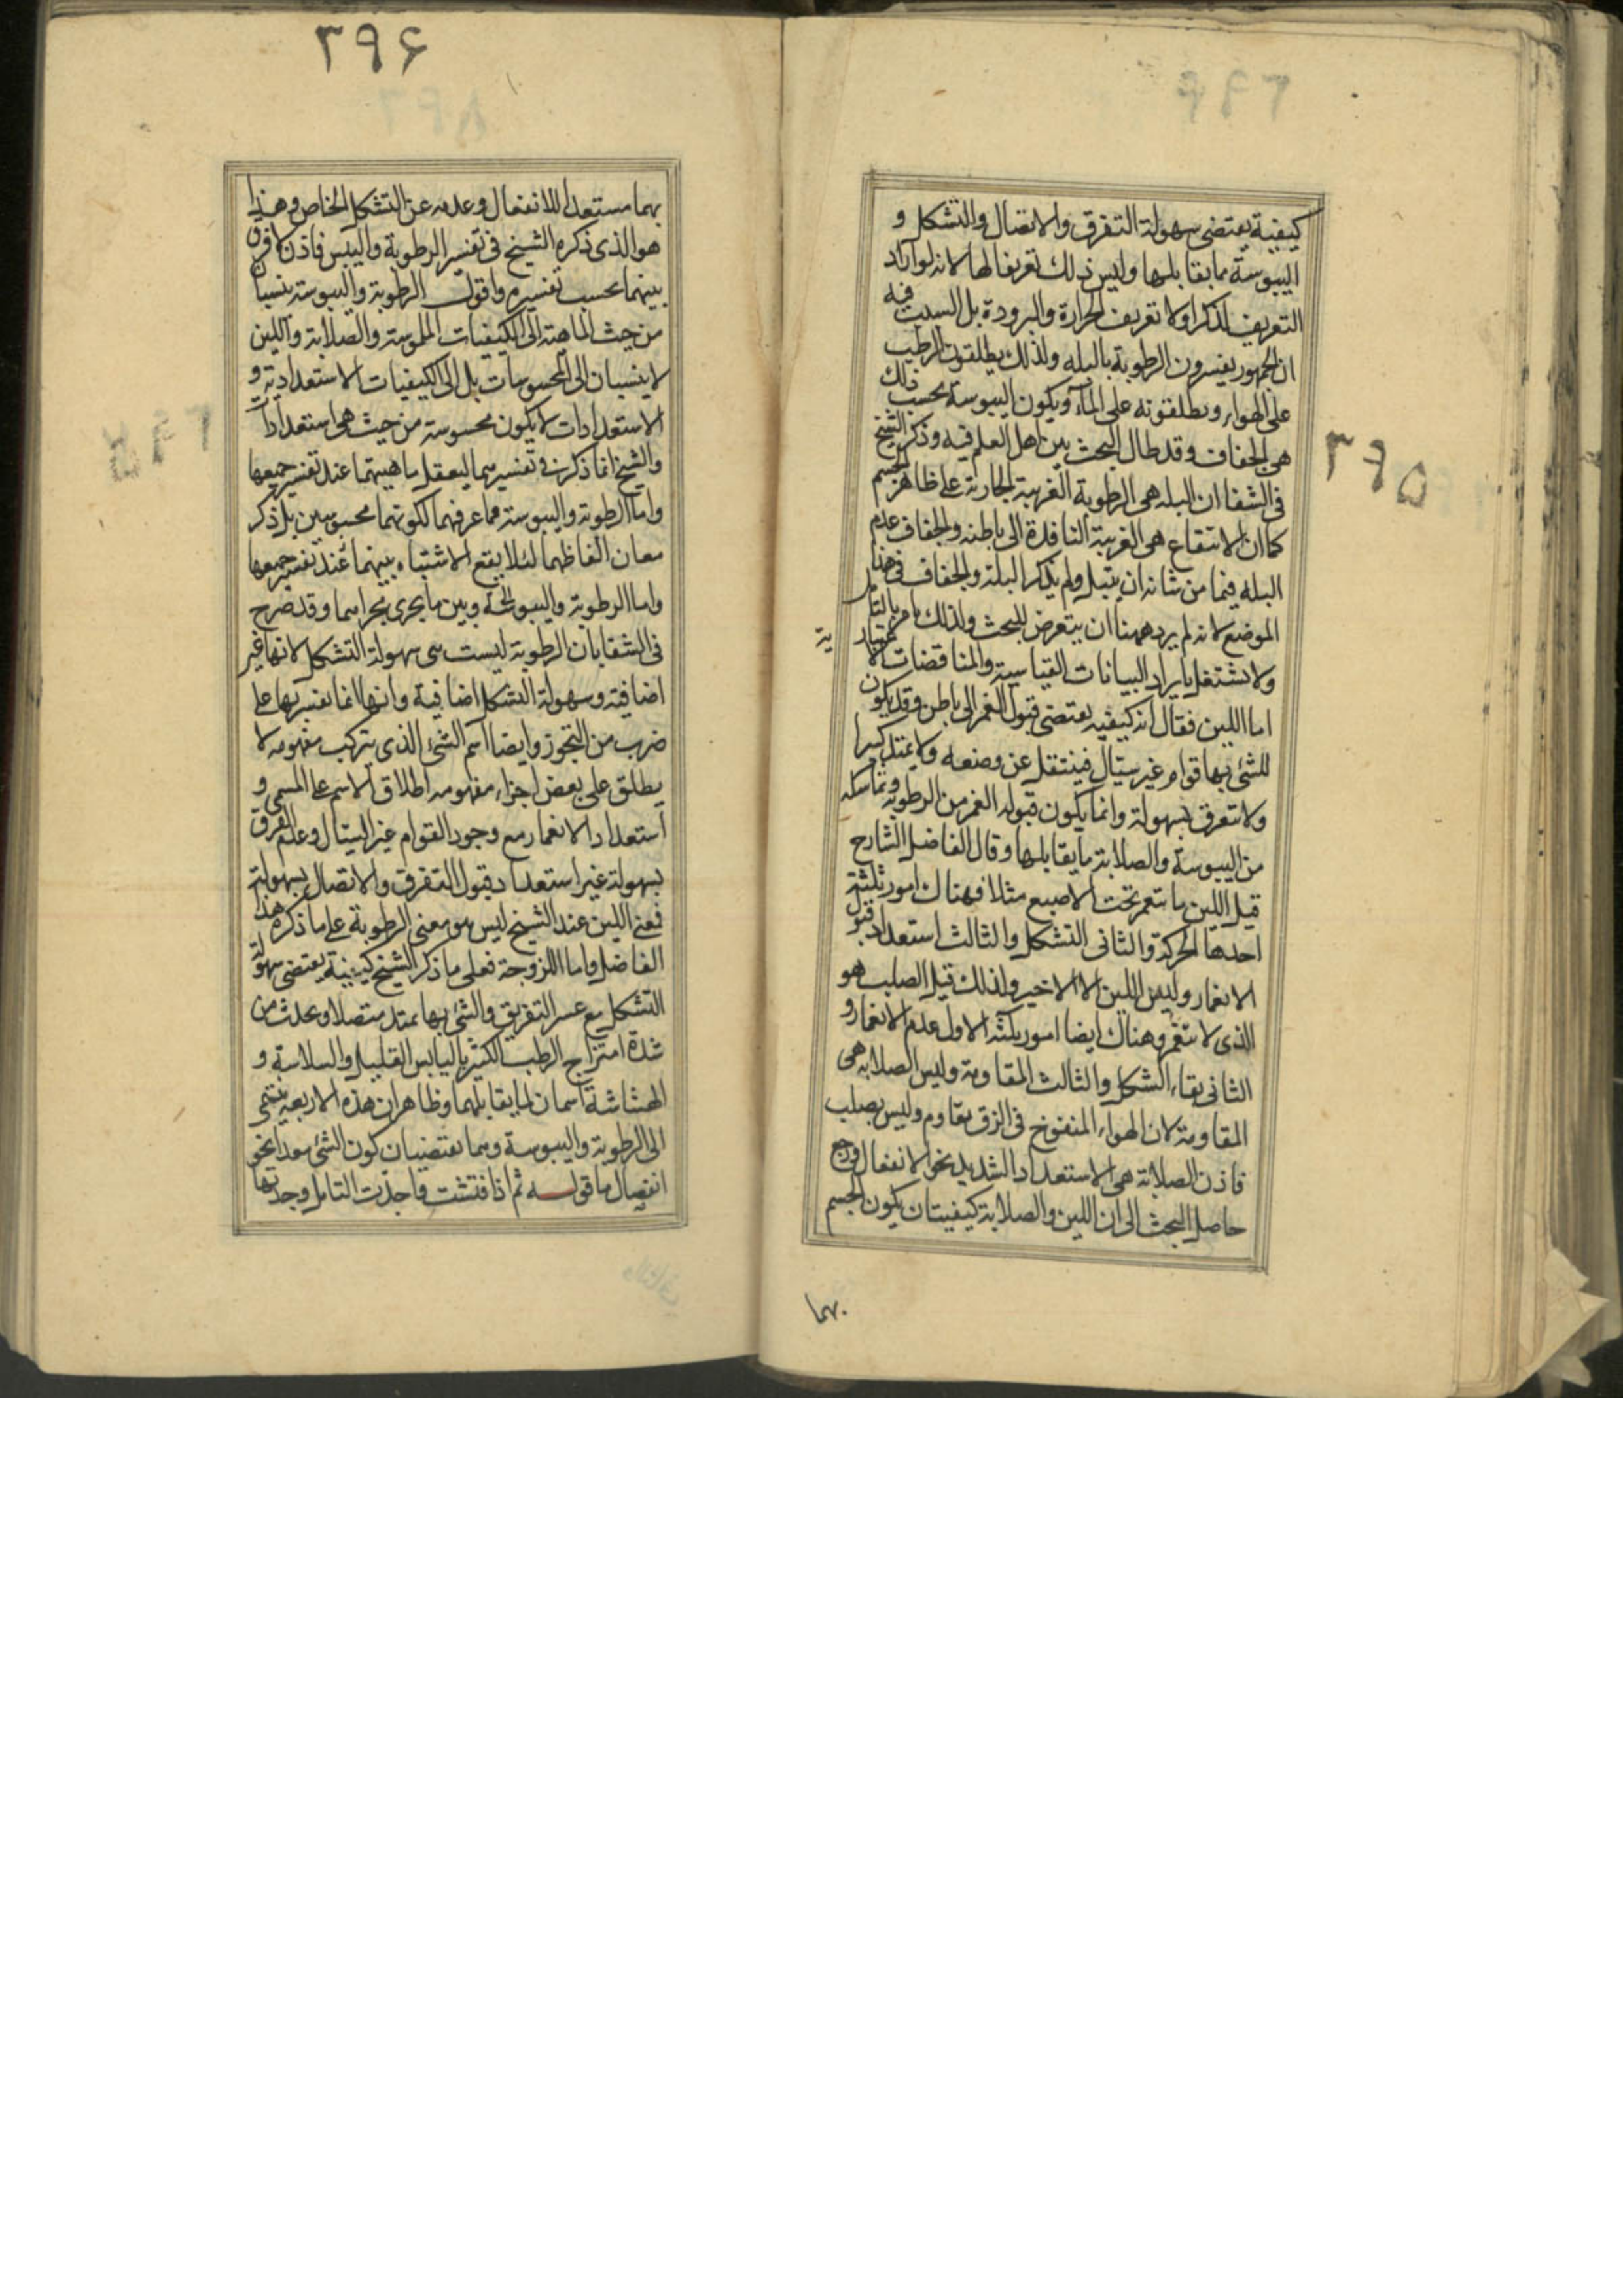 ٣٩۵
كيفية يقتضى سهولة التفرق والاتصال والتشكل و
اليبوسة بما يقابلها وليس ذلك تعريفا لها لانه لو اراد
التعريف لذكر اولا تعريف الحرارة والبرودة بل السبب فيه
ان الجمهور يفسرون الرطوبة بالبله ولذلك يطلقون الرطب
على الهواء ويطلقونه على الماء ويكون اليبوسة بحسب ذلك
هى الجفاف وقد طال البحث بين اهل العلم فيه وذكر الشيخ
فى الشفا ان البله هى الرطوبة الغريبة الجارية على ظاهر الجسم
كما ان الانتقاع هى الغريبة النافدة الى باطنه والجفاف عدم
البله فيما من شانه ان يبتل ولم يذكر البلة والجفاف فى هذا
الموضع لانه لم يرد ههنا ان يتعرض للبحث ولذلك امر بالتامل
ولا نشتغل بايراد البيانات القياسية والمناقضات الاعتبارية
اما اللين فقال انه كيفيه يقتضى قبول الغمز الى باطن وقد يكون
للشئ بها قوام غير سيّال فينتقل عن وضعه ولا يمتد كثيرا
ولا تتفرق بسهولة وانما يكون قبوله الغمز من الرطوبة وتماسكه
من اليبوسة والصلابة ما يقابلها وقال الفاضل الشارح
قيل اللين ما ينغمز تحت الاصبع مثلا فهناك امور ثلثة
احدها الحركة والثانى التشكل والثالث استعداد قبول
الانغماز وليس اللين الا الاخير ولذلك قيل الصلب هو
الذى لا ينغمز وهناك ايضا امور ثلثه الاول عدم الانغماز و
الثانى بقاء الشكل والثالث المقاومة وليس الصلابه هى
المقاومة لان الهواء المنفوخ فى الزق يقاوم وليس بصلب
فاذن الصلابة هى الاستعداد الشديد نحو الانفعال فرجع
حاصل البحث الى ان اللين والصلابة كيفيتان يكون الجسم
بهما
٣٩۶
بهما مستعدا للانفعال وعدمه عن التشكل الخاص وهذا
هو الذى ذكره الشيخ فى تفسير الرطوبة واليبس فاذن لا فرق
بينهما بحسب تفسيره واقول الرطوبة واليبوسة ينسبان
من حيث الماهية الى الكيفيات الملموسة والصلابة واللين
لا ينسبان الى المحسوسات بل الى الكيفيات الاستعدادية و
الاستعدادات لا يكون محسوسة من حيث هى استعدادات
والشيخ انما ذكر فى تفسيرهما ليعقل ماهيتهما عند تفسير جميعها
واما الرطوبة واليبوسة فما عرفهما لكونهما محسوسين بل ذكر
معان الفاظهما لئلا يقع الاشتباه بينهما عند تفسير جميعها
واما الرطوبة واليبوسة وبين ما يجرى مجراهما وقد صرح
فى الشفا بان الرطوبة ليست هى سهولة التشكل لانها غير
اضافية وسهولة التشكل اضافية وانها انما يفسر بها على
ضرب من التجوز وايضا اسم الشئ الذى يتركب مفهومه لا
يطلق على بعض اجزاء مفهومه اطلاق الاسم على المسمى و
استعداد الانغماز مع وجود القوام غير السيال وعدم التفرق
بسهولة غير استعداد قبول التفرق والاتصال بسهولة
فمعنى اللين عند الشيخ ليس هو معنى الرطوبة على ما ذكره هذا
الفاضل واما اللزوجة فعلى ما ذكر الشيخ كيفية يقتضى سهولة
التشكل مع عسر التفريق والشئ بها يمتد متصلا ويحدث من
شدة امتزاج الرطب الكثير باليابس القليل والسلاسة و
الهشاشة اسمان لما يقابلهما وظاهر ان هذه الاربعة ينتمى
الى الرطوبة واليبوسة وهما يقتضيان كون الشئ معدا نحو
انفصال ما قوله ثم اذا فتشت واجدّت التامل وجدتها